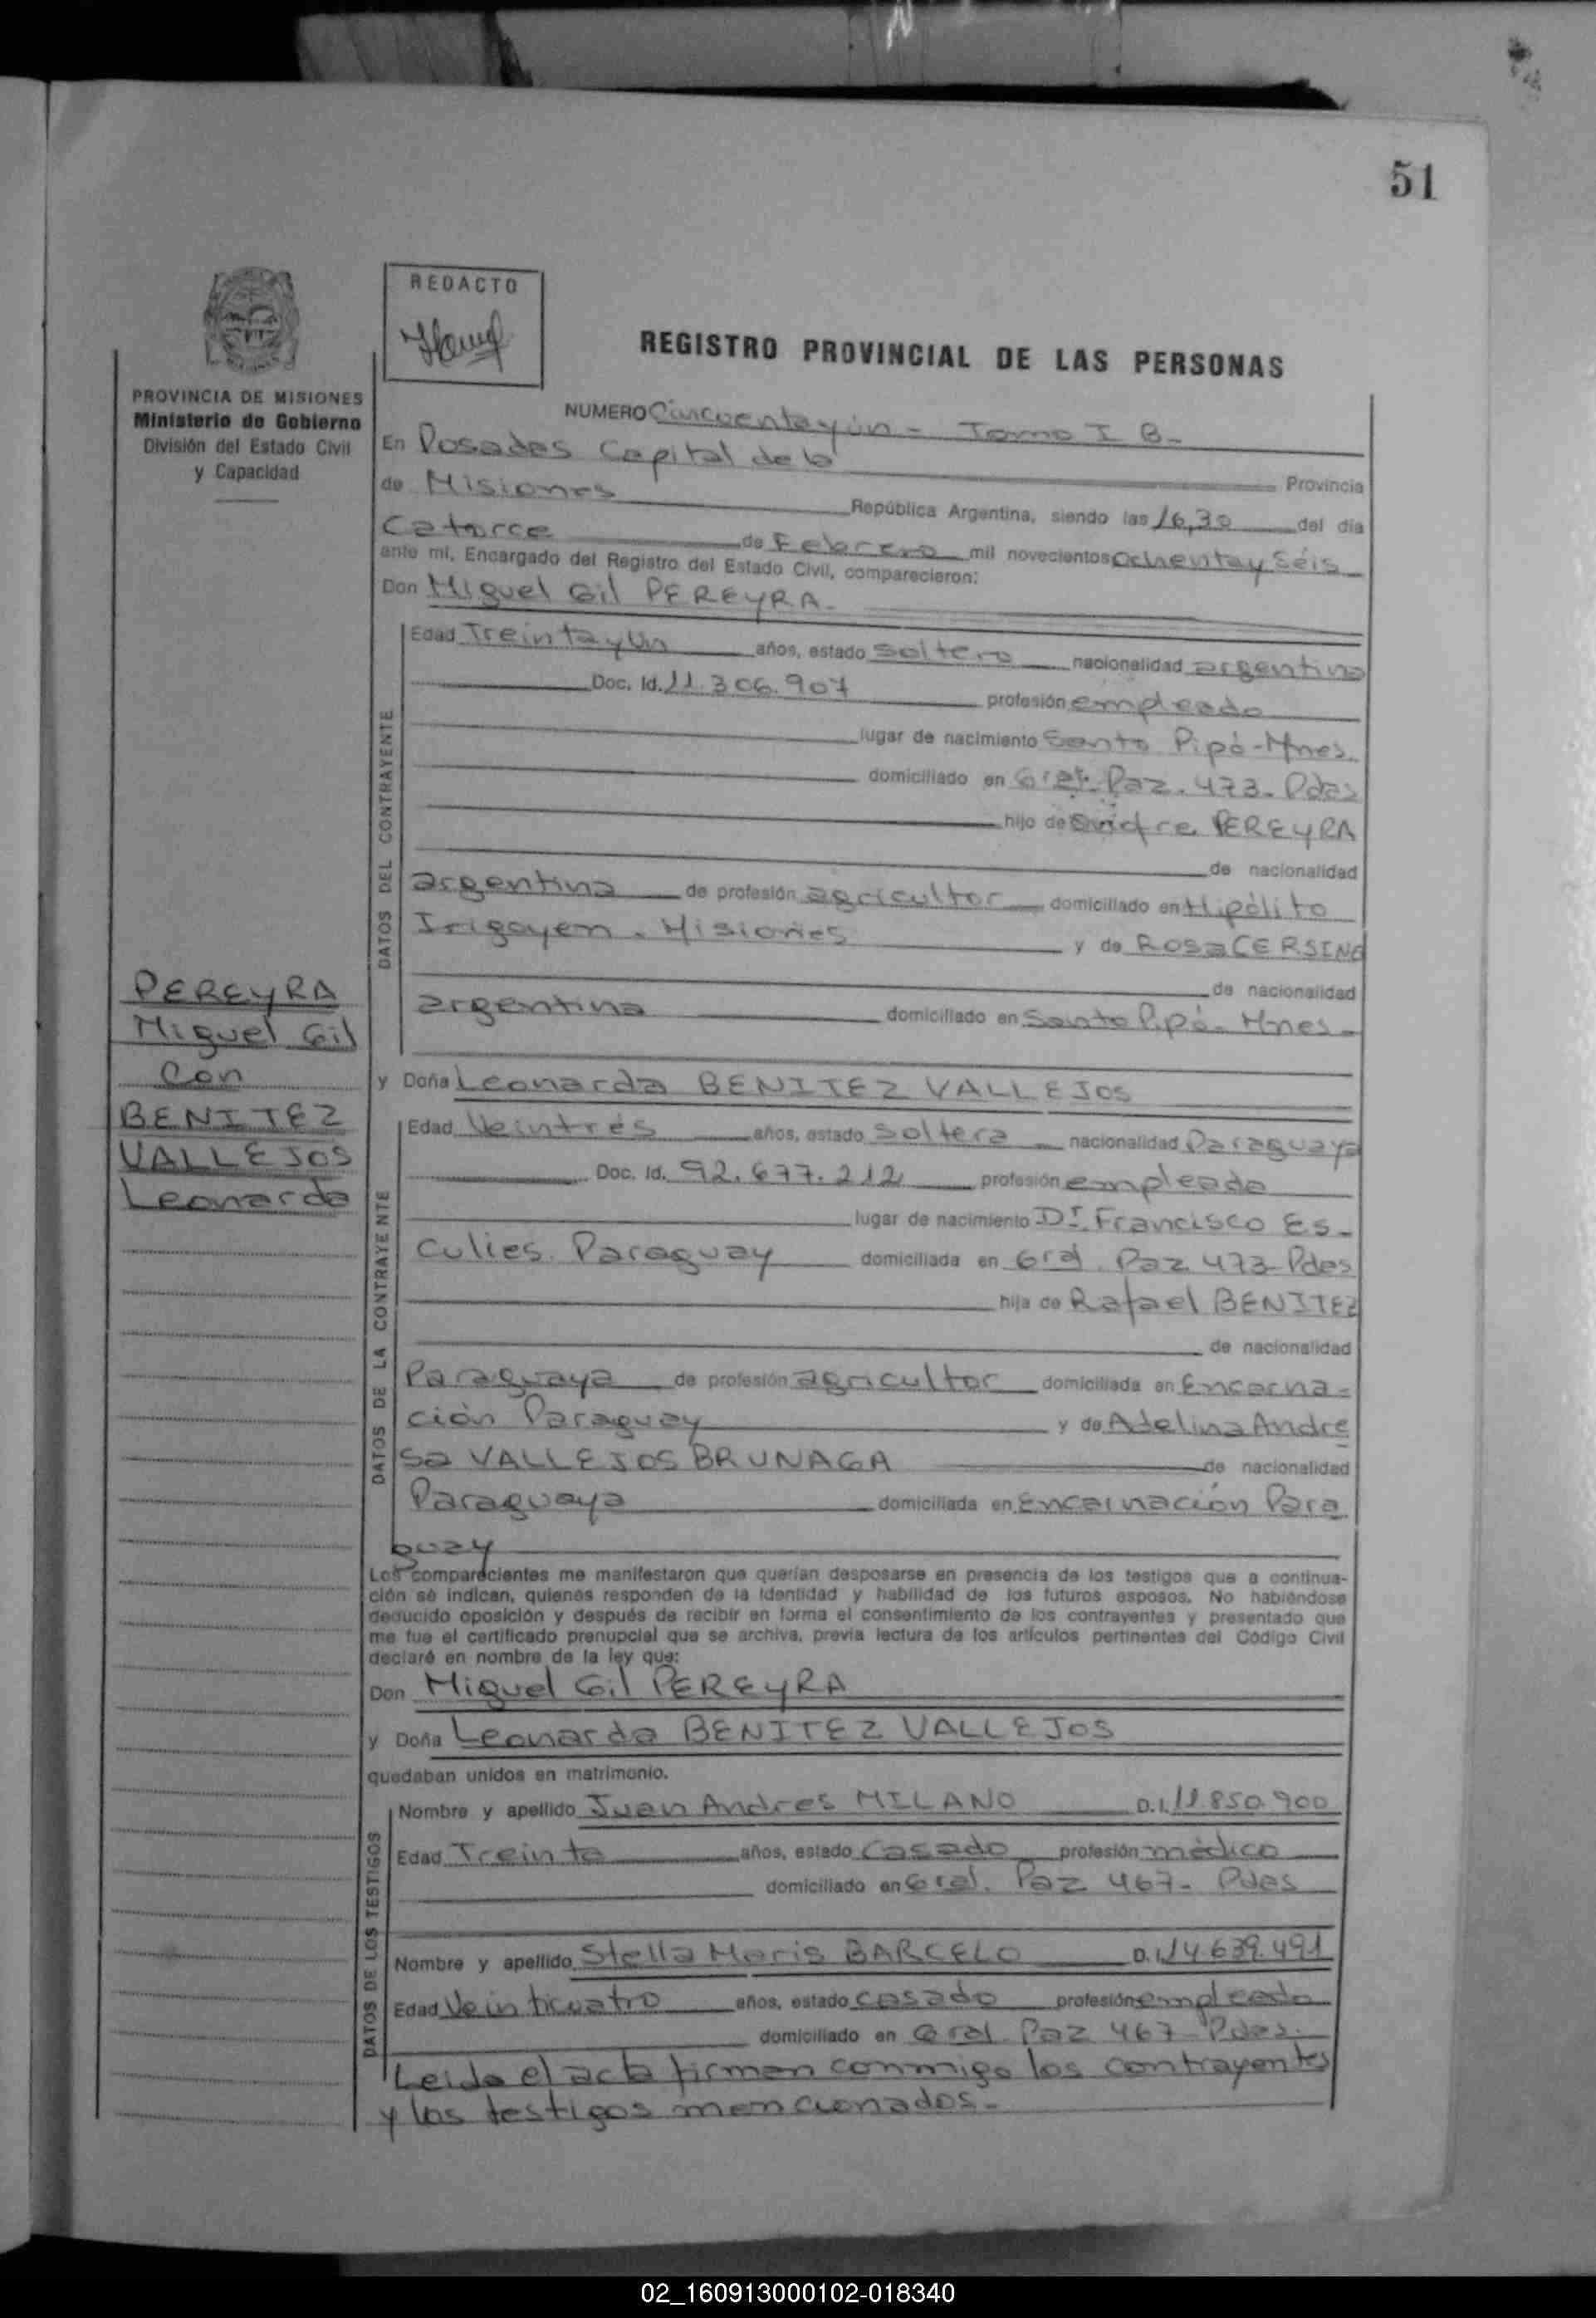 51
REDACTO
REGISTRO PROVINCIAL DE LAS PERSONAS
PROVINCIA DE MISIONES
Ministerio de Gobierno
División del Estado Civil
y Capacidad
NUMERO Cincuenta y ún - Tomo I B-
En Posadas Capital de la
Provincia
de Misiones República Argentina, siendo las 16,30 del día
Catorce de Febrero mil novecientos ochenta y Séis
ante mí, Encargado del Registro del Estado Civil, comparecieron:
Don Miguel Gil PEREYRA-
DATOS DEL CONTRAYENTE
Edad Treinta y Un años, estado soltero nacionalidad argentina
Doc. Id. 11.306.907 profesión empleado
lugar de nacimiento Santo Pipó-Mnes.
domiciliado en Gral. Paz. 473- Pdas
hijo de PEREYRA
de nacionalidad
argentina de profesión agricultor domiciliado en Hipólito
Irigoyen - Misiones y de Rosa CERSINO
de nacionalidad
argentina domiciliado en Santo Pipó- Mnes-
PEREYRA
Miguel Gil
Con
BENITEZ
VALLEJOS
Leonarda
y Doña Leonarda BENITEZ VALLEJOS
DATOS DE LA CONTRAYENTE
Edad Veintrés años, estado Soltera nacionalidad Paraguaya
Doc. Id. 92.677.212 profesión empleada
lugar de nacimiento Dr. Francisco Es-
culies Paraguay domiciliada en Gral. Paz 473-Pdas
hija de Rafael BENITEZ
de nacionalidad
Paraguaya de profesión agricultor domiciliada en Encarna-
ción Paraguay y de Adelina Andre
sa VALLEJOS BRUNAGA de nacionalidad
Paraguaya domiciliada en Encarnación Para
guay
Los comparecientes me manifestaron que querían desposarse en presencia de los testigos que a continua-
ción se indican, quienes responden de la identidad y habilidad de los futuros esposos. No habiéndose
deducido oposición y después de recibir en forma el consentimiento de los contrayentes y presentado que
me fue el certificado prenupcial que se archiva, previa lectura de los artículos pertinentes del Código Civil
declaré en nombre de la ley que:
Don Miguel Gil PEREYRA
y Doña Leonarda BENITEZ VALLEJOS
quedaban unidos en matrimonio.
DATOS DE LOS TESTIGOS
Nombre y apellido Juan Andres MILANO D.I. 11.850.900
Edad Treinta años, estado Casado profesión médico
domiciliado en Gral. Paz 467- Pdas
Nombre y apellido Stella Maris BARCELO D.I. 14.639.491
Edad Veinticuatro años, estado casado profesión empleada
domiciliado en Gral. Paz 467-Pdas.
Leida el acta firman conmigo los contrayentes
y los testigos mencionados-
02_160913000102-018340